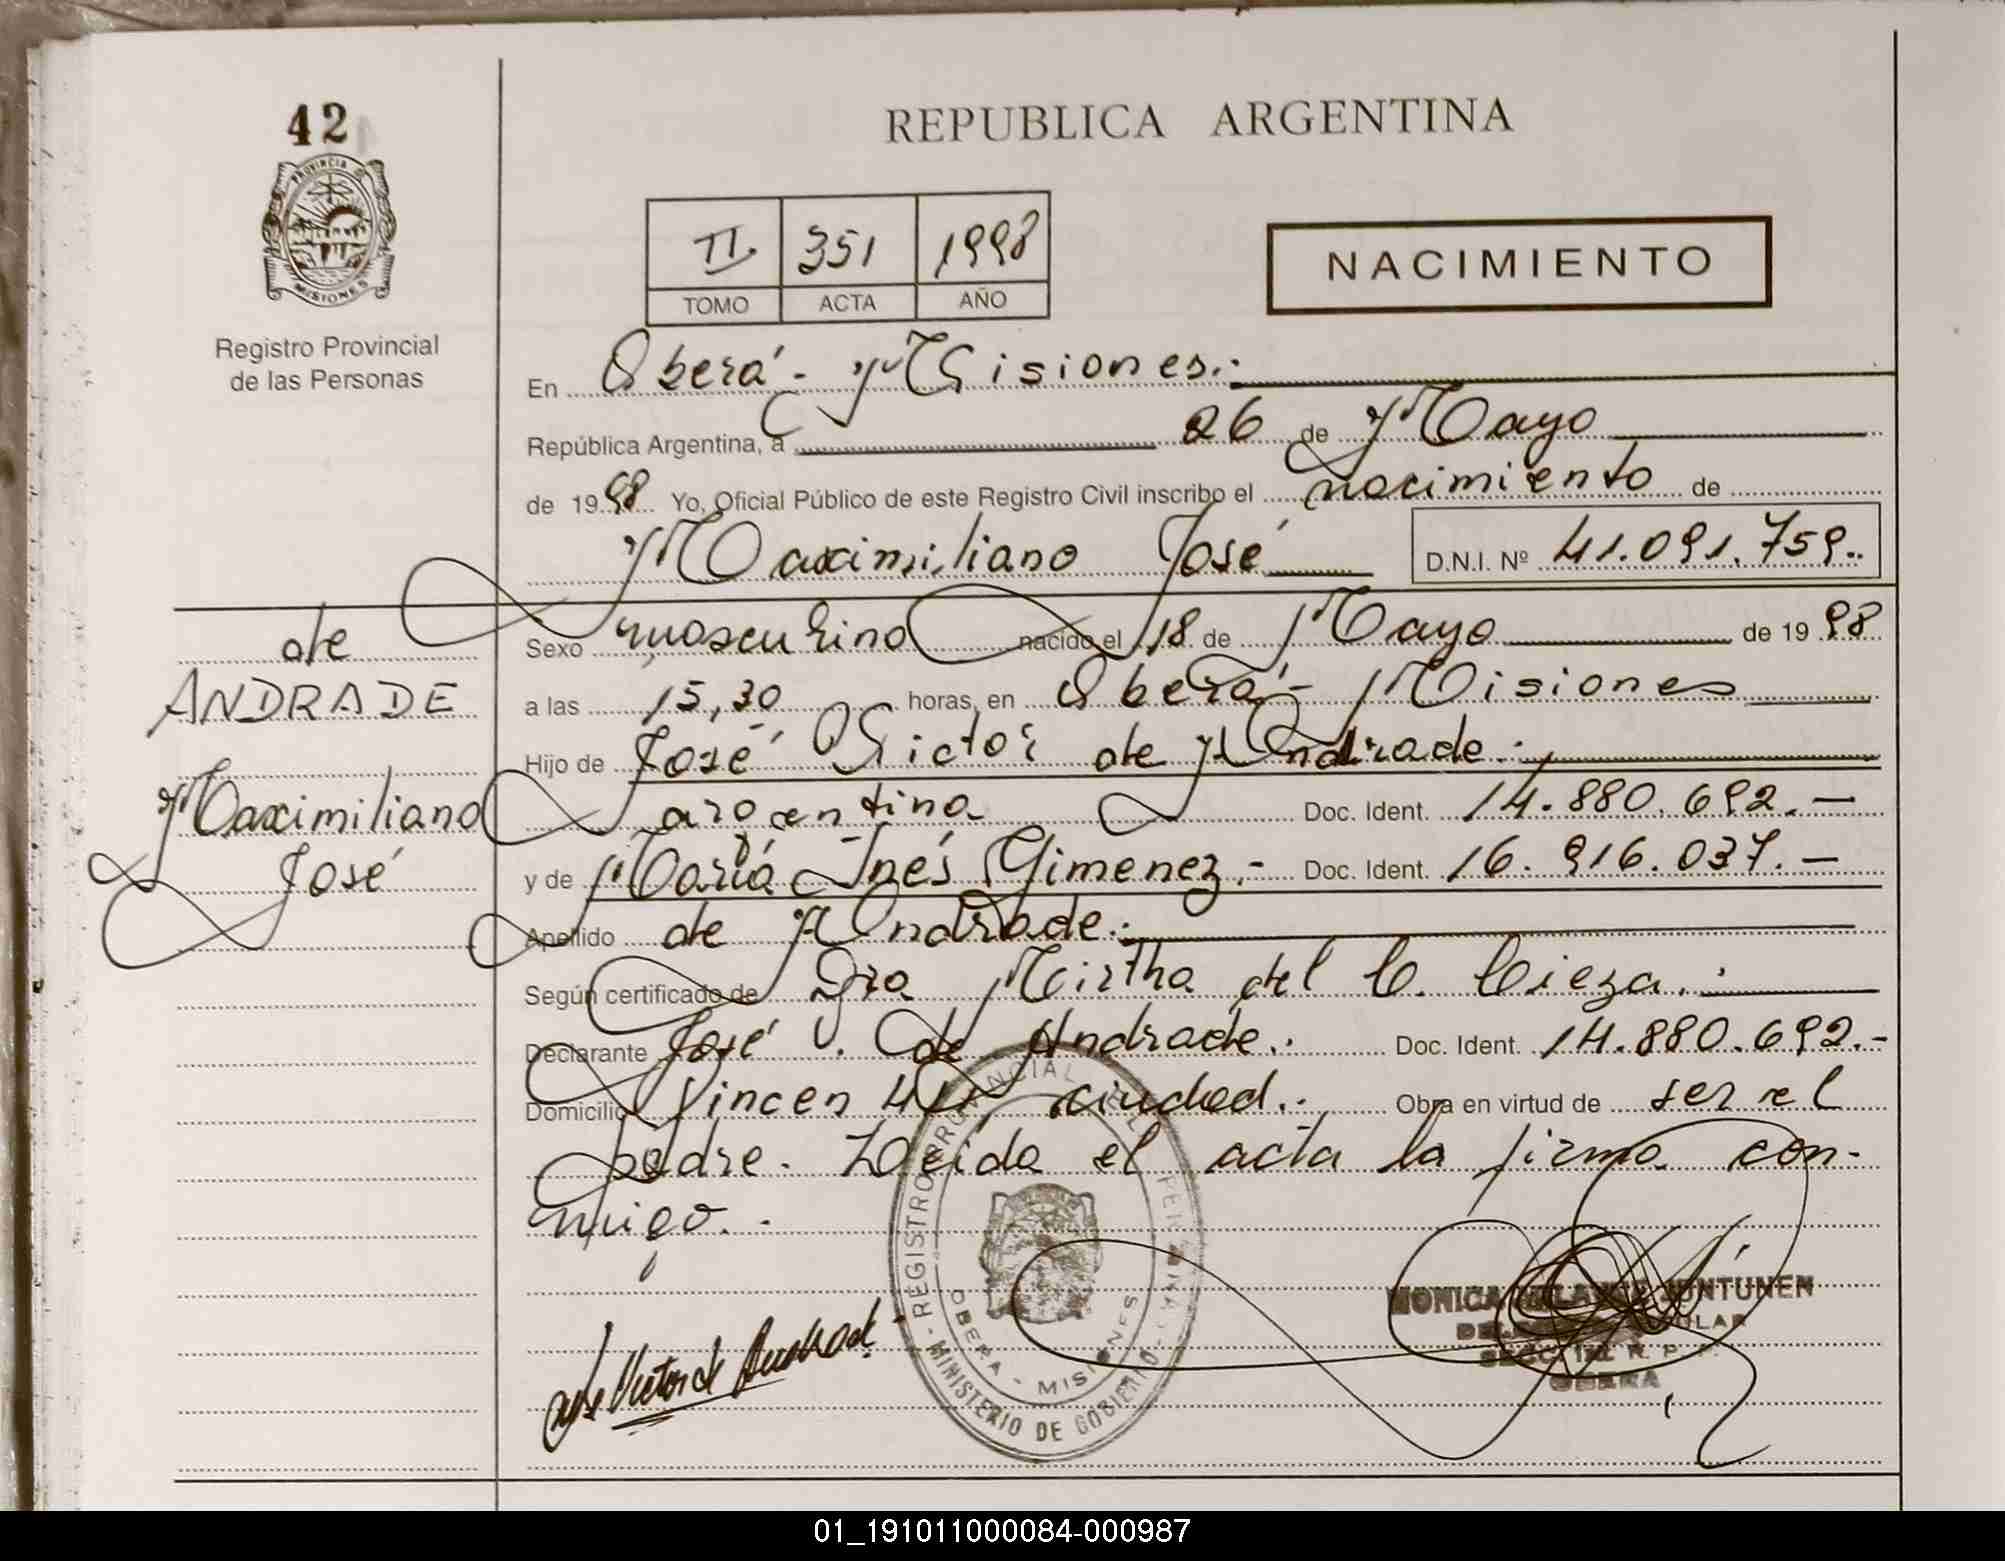 42
REPUBLICA ARGENTINA
PROVINCIA D
MISIONES
Registro Provincial
de las Personas
II. 351 1998
TOMO ACTA AÑO
NACIMIENTO
En Oberá - Misiones.-
República Argentina, a 26 de Mayo
de 1998 Yo, Oficial Público de este Registro Civil inscribo el nacimiento de
Maximiliano José D.N.I. Nº 41.091.759.-
de
ANDRADE
Maximiliano
José
Sexo masculino nacido el 18 de Mayo de 1998
a las 15,30 horas, en Oberá - Misiones
Hijo de José Victor de Andrade.-
argentino Doc. Ident. 14.880.692.-
y de María Inés Gimenez.- Doc. Ident. 16.916.037.-
Apellido de Andrade.-
Según certificado de Dra Mirtha del C. Cieza.-
Declarante José V. de Andrade.- Doc. Ident. 14.880.692.-
Domicilio ciudad.- Obra en virtud de ser el
padre. Leída el acta la firma con-
migo.-
José Victor de Andrade
REGISTRO PROVINCIAL DE
OBERA - MISIONES
MINISTERIO DE GOBIERNO
MONICA JUNTUNEN
R. P. P.
OBERA
01_191011000084-000987